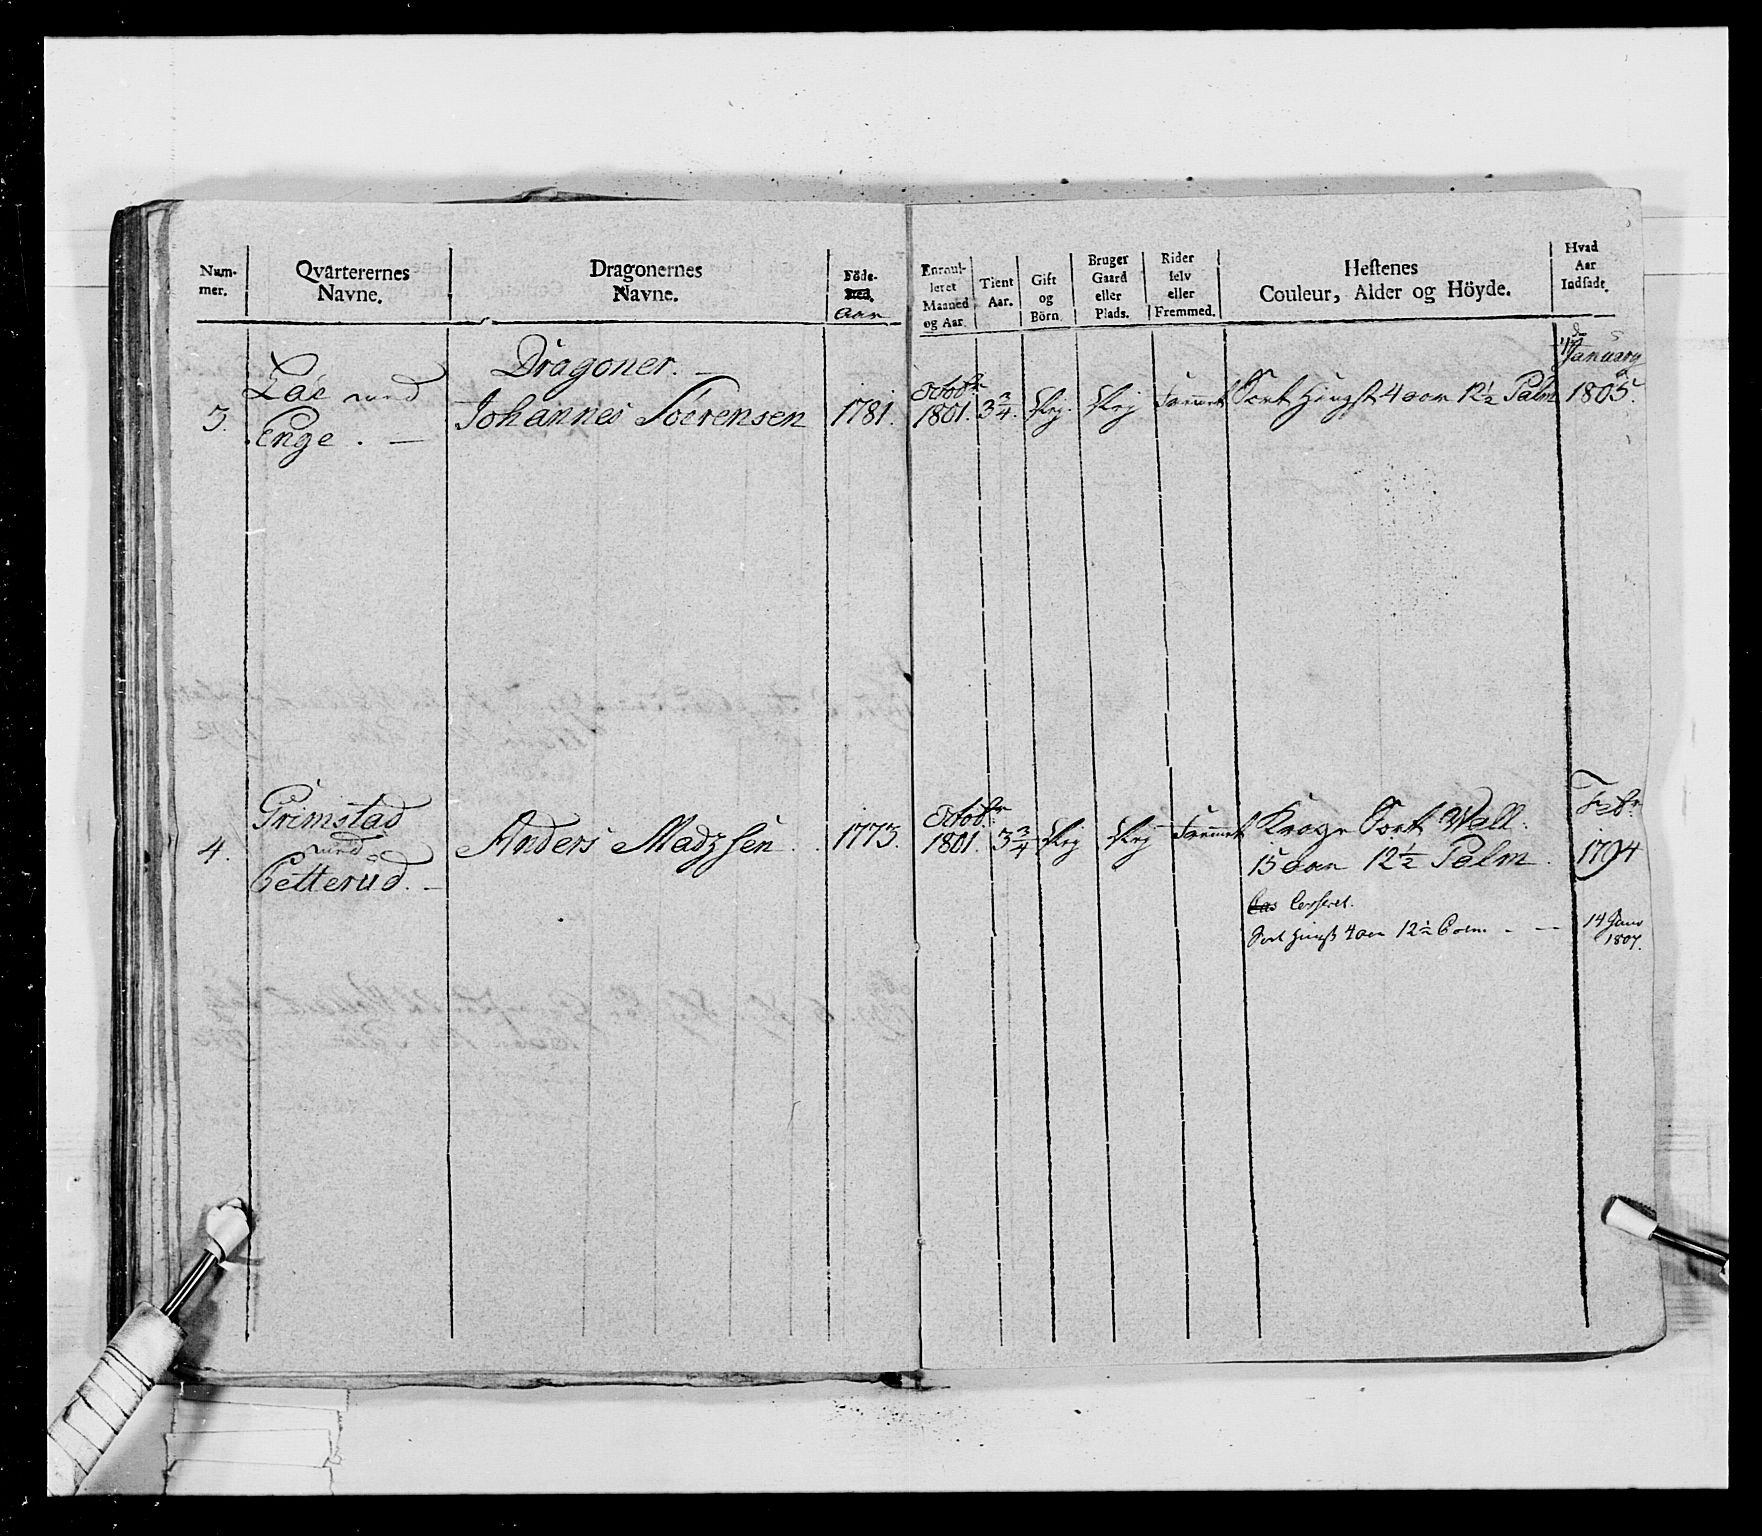 Num-
mer.
Qvarterernes
Navne.
Dragonernes
Navne.
Föde-
sted.
Aar
Enroul-
leret
Maaned
og Aar.
Tient
Aar.
Gift
og
Börn.
Bruger
Gaard
eller
Plads.
Rider
selv
eller
Fremmed.
Hestenes
Couleur, Alder og Höyde.
Hvad
Aar
Indsadt.
Dragoner.
3.
Laè med
Enge.
Johannes Soèrensen
1781.
Octobr
1801.
3 3/4.
Nej.
Nej
Fremmet
Sort Hingst 4 aar 12 1/2 Palm
January
1805.
4.
Grimstad
med
Petterud.
Anders Madzsen
1773.
Octobr
1801.
3 3/4
Nej
Nej
Fremmet
Sort Wall.
15 aar 12 1/2 Palm.
Febr
1794
Casseret.
Sort Hingst 4 aar 12 1/2 Palm
14 Janv
1807.